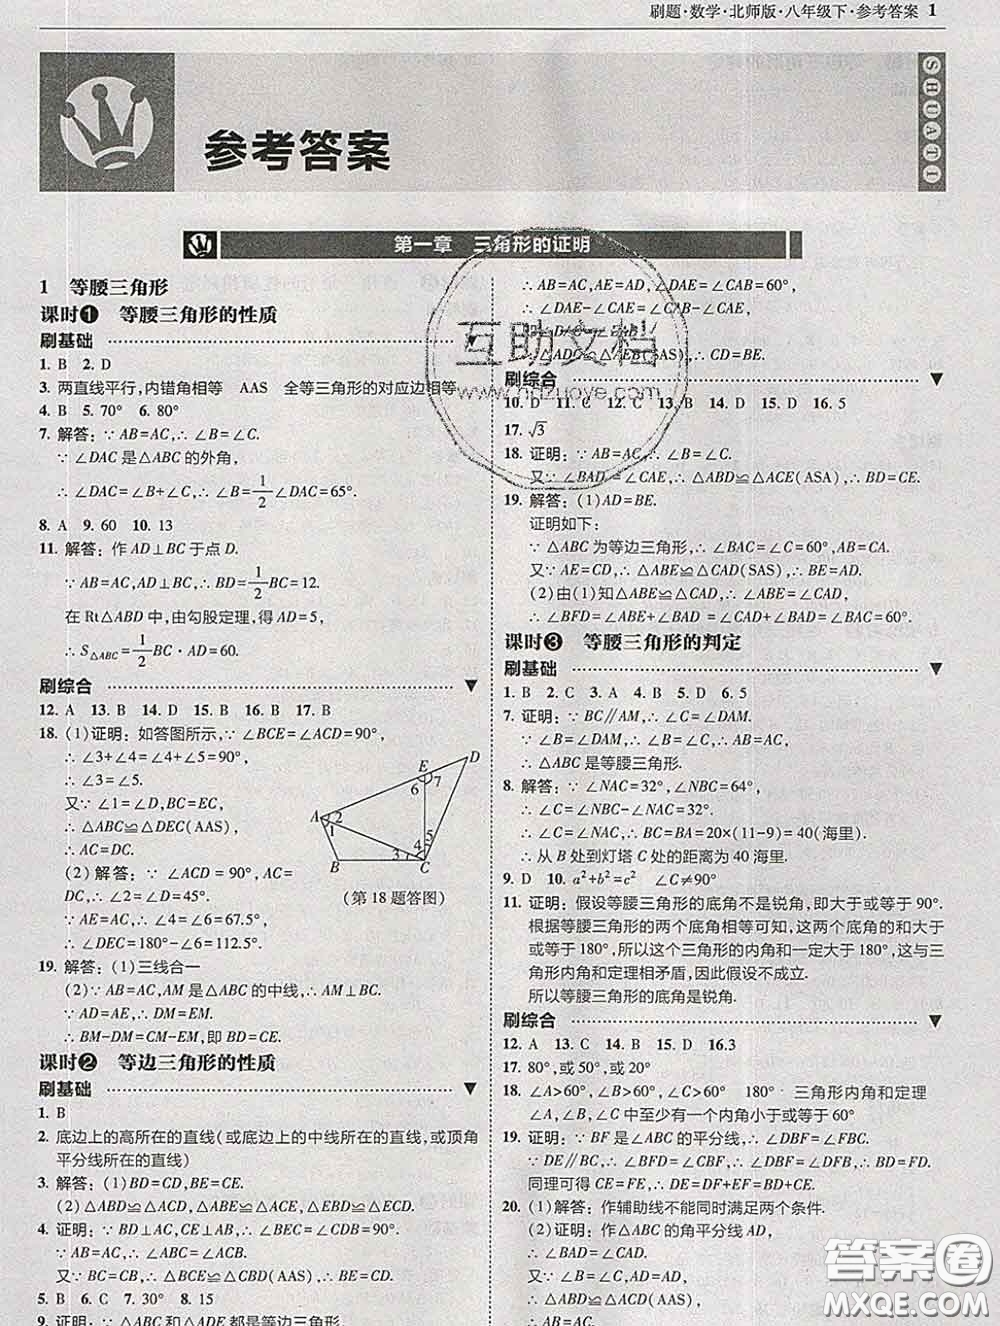 刷题·数学·北师版·八年级下·参考答案 1
SHUATI
参考答案
第一章 三角形的证明
1 等腰三角形
课时1 等腰三角形的性质
刷基础
1. B 2. D
3. 两直线平行,内错角相等 AAS 全等三角形的对应边相等
4. B 5. 70° 6. 80°
7. 解答:∵ AB=AC,∴ ∠B=∠C.
∵ ∠DAC 是△ABC 的外角,
∴ ∠DAC=∠B+∠C,∴ ∠B=1/2∠DAC=65°.
8. A 9. 60 10. 13
11. 解答:作 AD⊥BC 于点 D.
∵ AB=AC,AD⊥BC,∴ BD=1/2BC=12.
在 Rt△ABD 中,由勾股定理,得 AD=5,
∴ S△ABC=1/2BC·AD=60.
刷综合
12. A 13. B 14. D 15. B 16. B 17. B
18. (1)证明:如答图所示,∵ ∠BCE=∠ACD=90°,
∴ ∠3+∠4=∠4+∠5=90°,
∴ ∠3=∠5.
又∵ ∠1=∠D,BC=EC,
∴ △ABC≌△DEC(AAS),
∴ AC=DC.
(2) 解答:∵ ∠ACD = 90°, AC=
DC,∴ ∠2=∠D=45°.
∵ AE=AC,∴ ∠4=∠6=67.5°,
∴ ∠DEC=180°-∠6=112.5°.
A B C D E 1 2 3 4 5 6 7
(第 18 题答图)
19. 解答:(1)三线合一
(2)∵ AB=AC,AM 是△ABC 的中线,∴ AM⊥BC.
∵ AD=AE,∴ DM=EM.
∴ BM-DM=CM-EM,即 BD=CE.
课时2 等边三角形的性质
刷基础
1. B
2. 底边上的高所在的直线(或底边上的中线所在的直线,或顶角
平分线所在的直线)
3. 解答:(1)BD=CD,BE=CE.
(2)△ABD≌△ACD,△ABE≌△ACE,△EBD≌△ECD.
4. 证明:∵ BD⊥AC,CE⊥AB,∴ ∠BEC=∠CDB=90°.
∵ AB=AC,∴ ∠ABC=∠ACB.
又∵ BC=CB,∴ △BCE≌△CBD(AAS),∴ BD=CE.
5. B 6. C 7. 30° 8. 15
9. 证明:∵ △ABC 和△ADE 都是等边三角形,
∴ AB=AC,AE=AD,∴ ∠DAE=∠CAB=60°,
∴ ∠DAE-∠CAE=∠CAB-∠CAE,
∴ △ADC≌△AEB(SAS),∴ CD=BE.
刷综合
10. D 11. C 12. C 13. B 14. D 15. D 16. 5
17. √3
18. 证明:∵ AB=AC,∴ ∠B=∠C.
又∵ ∠BAD=∠CAE,∴ △ABD≌△ACE(ASA),∴ BD=CE.
19. 解答:(1)AD=BE.
证明如下:
∵ △ABC 为等边三角形,∴ ∠BAC=∠C=60°,AB=CA.
又∵ AE=CD,∴ △ABE≌△CAD(SAS),∴ BE=AD.
(2)由(1)知△ABE≌△CAD,∴ ∠ABE=∠CAD,
∴ ∠BFD=∠ABE+∠BAD =∠CAD+∠BAD=∠BAC=60°.
课时3 等腰三角形的判定
刷基础
1. B 2. C 3. A 4. A 5. D 6. 5
7. 证明:∵ BC∥AM,∴ ∠C=∠DAM.
∵ ∠B=∠DAM,∴ ∠C=∠B,∴ AB=AC,
∴ △ABC 是等腰三角形.
8. 解答:∵ ∠NAC=32°,∠NBC=64°,
∴ ∠C=∠NBC-∠NAC=32°.
∴ ∠C=∠NAC,∴ BC=BA=20×(11-9)=40(海里).
∴ 从 B 处到灯塔 C 处的距离为 40 海里.
9. D 10. a²+b²=c² ∠C≠90°
11. 证明:假设等腰三角形的底角不是锐角,即大于或等于 90°.
根据等腰三角形的两个底角相等可知,这两个底角的和大于
或等于 180°,所以这个三角形的内角和一定大于 180°,这与三
角形内角和定理相矛盾,因此假设不成立.
所以等腰三角形的底角是锐角.
刷综合
12. A 13. C 14. B 15. B 16.3
17. 80°,或 50°,或 20°
18. ∠A>60°,∠B>60°,∠C>60° 180° 三角形内角和定理
∠A,∠B,∠C 中至少有一个内角小于或等于 60°
19. 证明:∵ BF 是∠ABC 的平分线,∴ ∠DBF=∠FBC.
∵ DE∥BC,∴ ∠BFD=∠CBF,∴ ∠BFD=∠DBF,∴ DB=DF.
同理可得 CE=FE,∴ DE=DF+EF=BD+CE.
20. (1)解答:作辅助线不能同时满足两个条件.
(2)证明:作△ABC 的角平分线 AD,
∴ ∠BAD=∠CAD.
∵ ∠B=∠C,AD=AD,
∴ △ABD≌△ACD(AAS),
∴ AB=AC.
互助文档
www.hdzuoye.com
答案圈
MXQE.COM